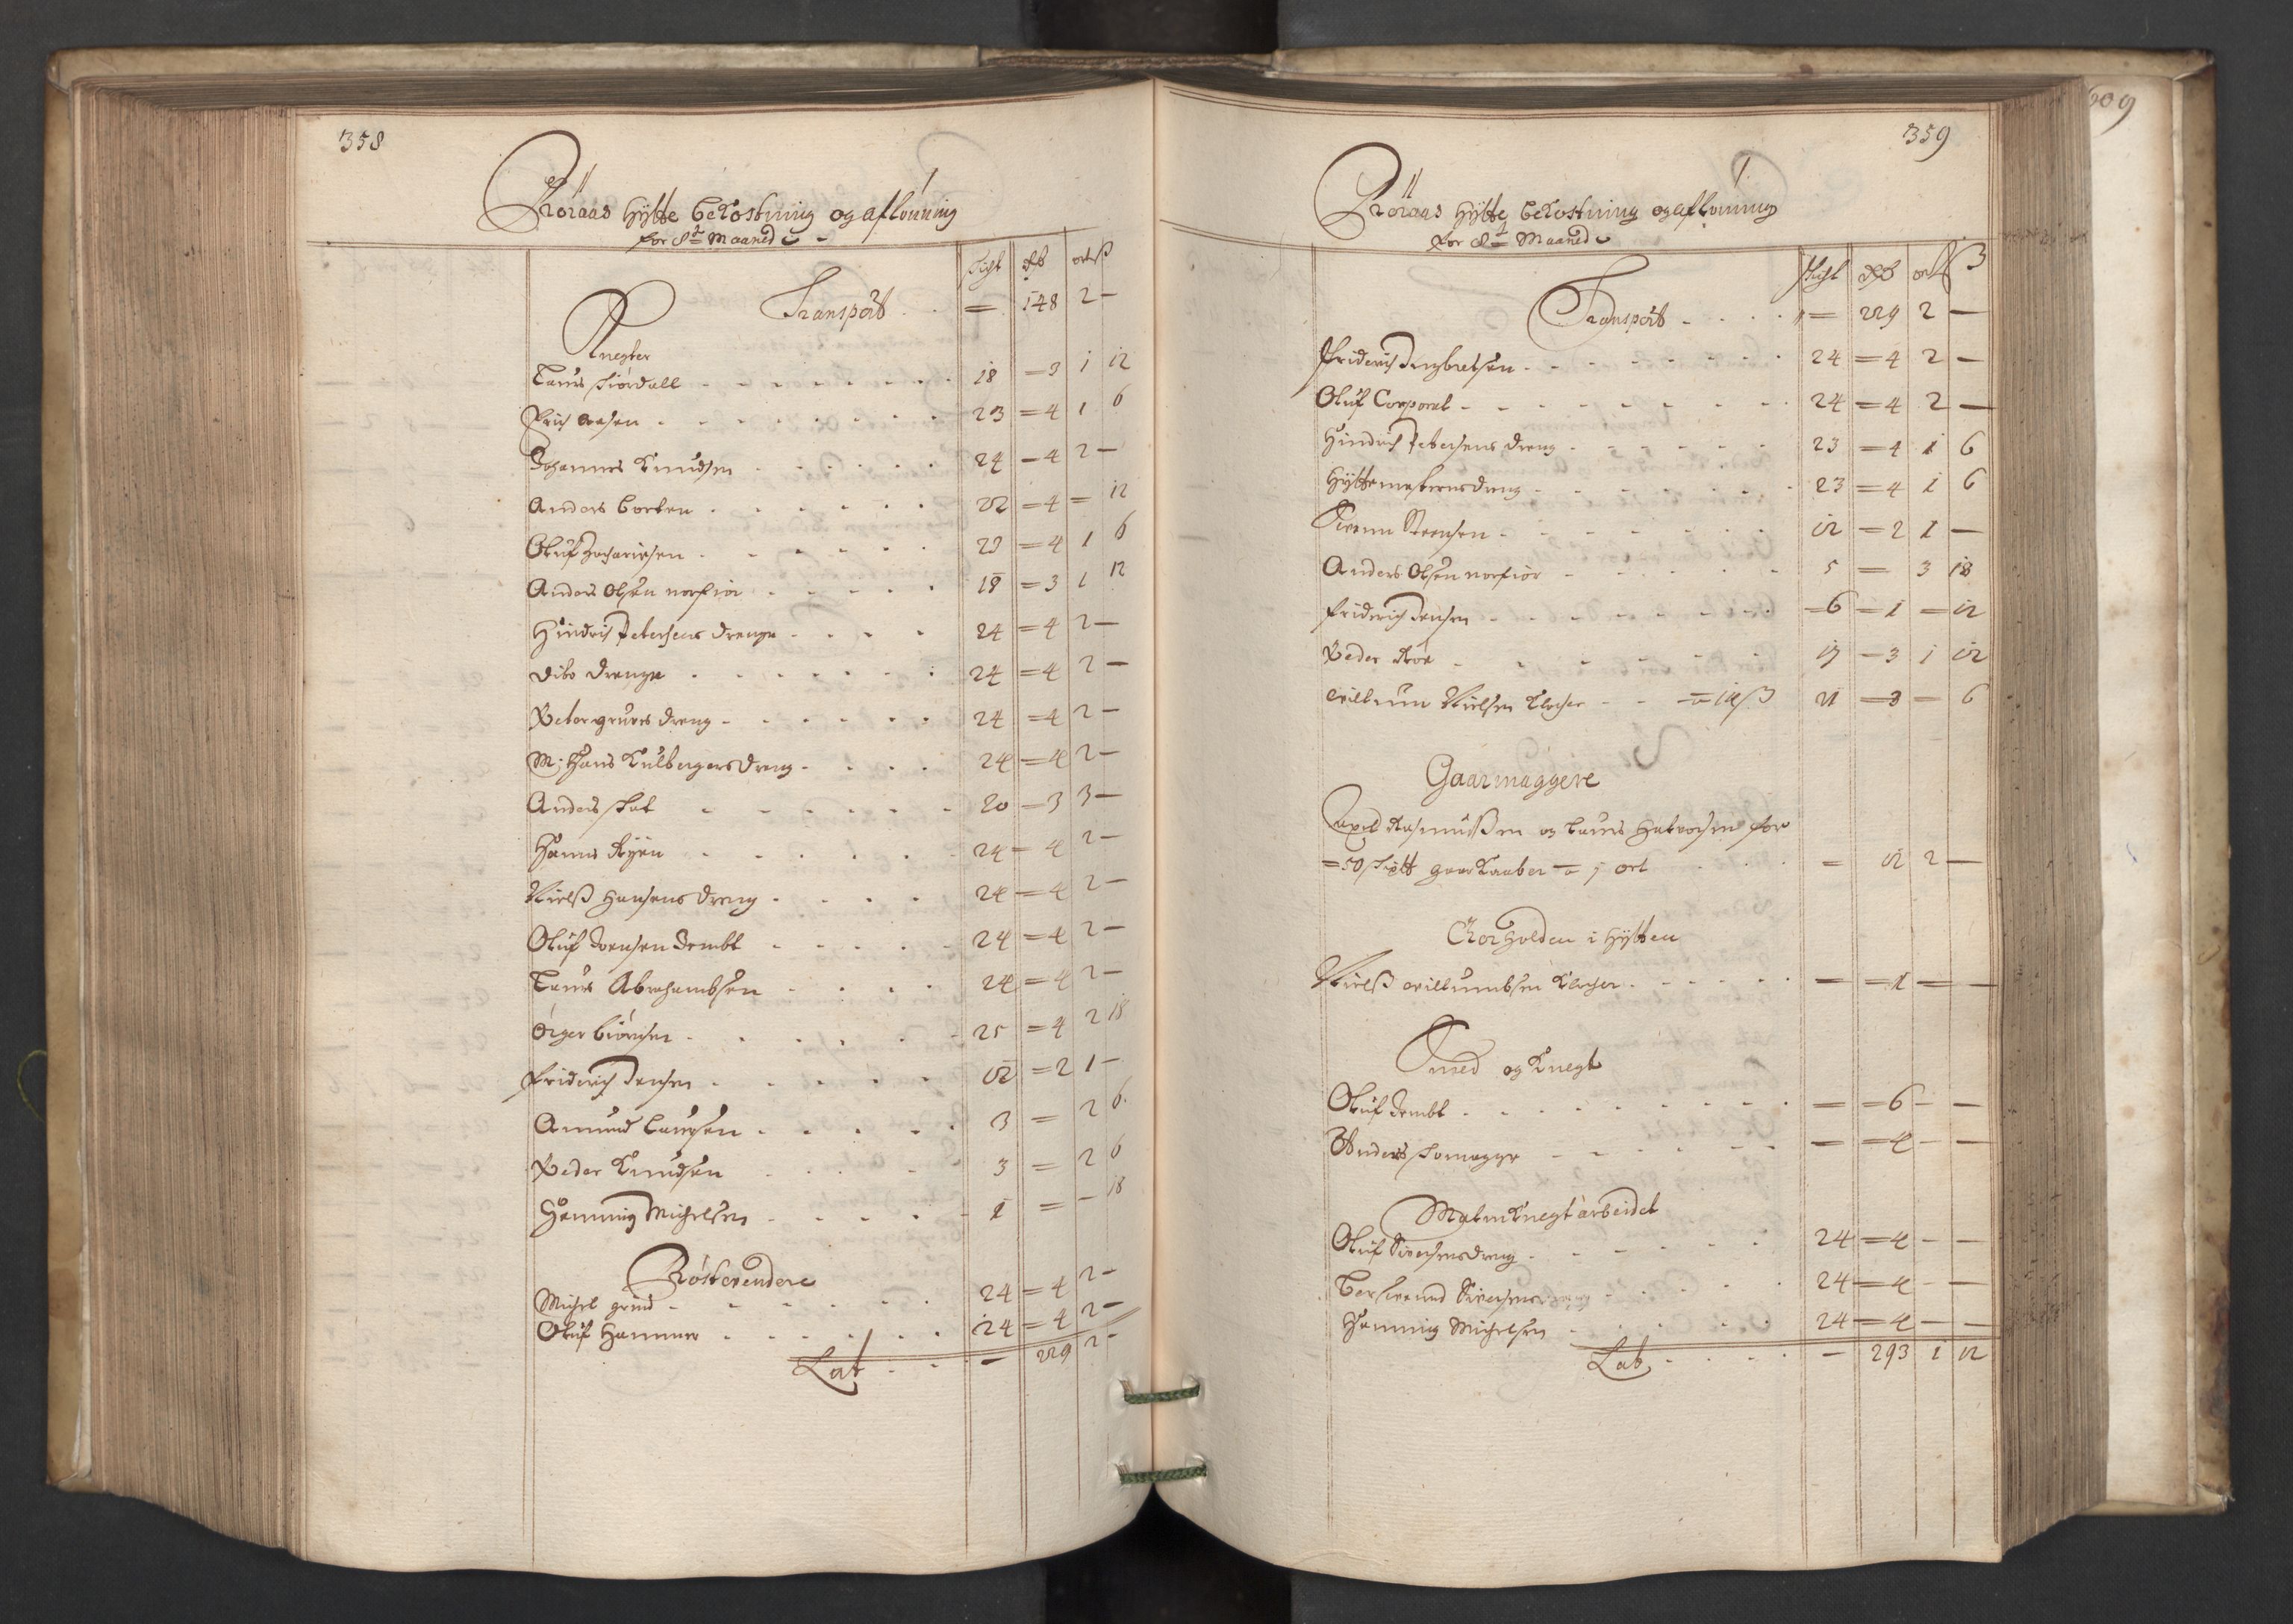 358
Röraas Hytte bekostning og aflönning
for 8de Maaned
Sigt rdr ort ß
Transport . . = 148 2 —
Knegter
Laurs Fiordall 18 = 3 1 12
Erich 23 = 4 1 6
Johannes Knudsen 24 — 4 2 —
Anders Borten 22 = 4 = 12
Oluf Zachariesen 23 = 4 1 6
Anders Olsen norfior 18 = 3 1 12
Hindrich Petersens drenge 24 = 4 2 —
dito drenge 24 = 4 2 —
Peter gruves dreng 24 = 4 2 —
M: Hans Kulbergers dreng 24 = 4 2 —
Anders skal 20 = 3 3 —
Hanns Ryen 24 = 4 2 —
Nielß Hansens dreng 24 = 4 2 —
Oluf Joensen Dembt 24 = 4 2 —
Laurs Abrahambsen 24 = 4 2 —
Örger biörnsen 25 = 4 2 18
Friderich Jensen 12 = 2 1 —
Amund Laursen 3 = 2 6
Peder Knudsen 3 = 2 6
Henning Michelsen 1 = — 18
Röstevendere
Michel grind 24 = 4 2 —
Oluf Hammer 24 = 4 2 —
Lat — 229 2 —
359
Röraas Hytte bekostning og aflönning
for 8de Maaned
Sigt rdr ort ß
Transport = 229 2 —
Friderich Ingbretsen 24 = 4 2 —
Oluf Corporal 24 = 4 2 —
Hindrich Petersens dreng 23 = 4 1 6
Hyttemesterens dreng 23 = 4 1 6
Svenn Steensen 12 = 2 1 —
Anders Olsen norfior 5 = 3 18
Friderich Jensen = 6 = 1 — 12
Peder Roe 17 = 3 1 12
Willum Nielsen Klocher = 14 ß 21 = 3 — 6
Gaarmaggere
Axel Rasmußen og Laurs Halvorsen for
= 50 Sk℔ gaar Kaaber = 1 ort = 12 2 —
Rorholden i Hytten
Nielß Willumbsen Klocher — = 1 — —
Smed og Knegt
Oluf Dembt — = 6 — —
Anders Somagge — = 4 — —
Malmknegt arbeidet
Oluf Siversens dreng 24 = 4 — —
Siversens 24 = 4 — —
Henning Michelsen 24 = 4 — —
Lat — 293 1 12
609